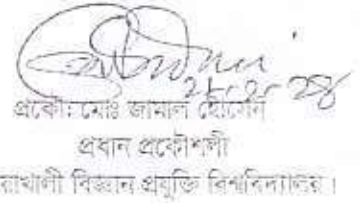 প্রকৌঃ মোঃ জামাল হোসেন
প্রধান প্রকৌশলী
য়াখালী বিজ্ঞান প্রযুক্তি বিশ্ববিদ্যালয়।